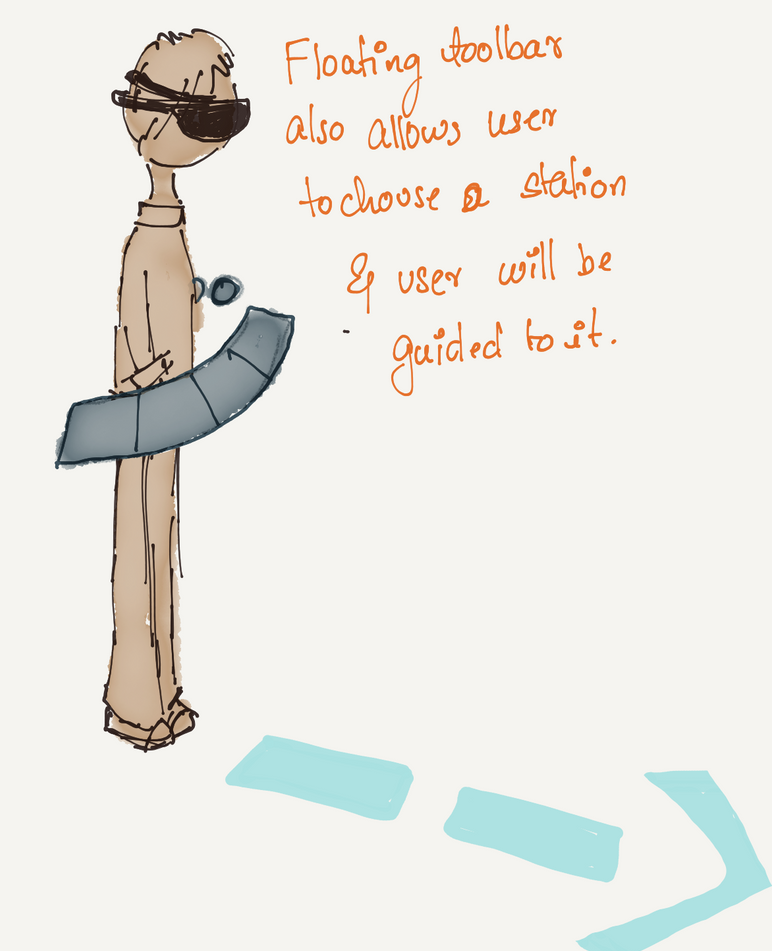 Floating toolbar
also allows user
to choose a station
& user will be
guided to it.